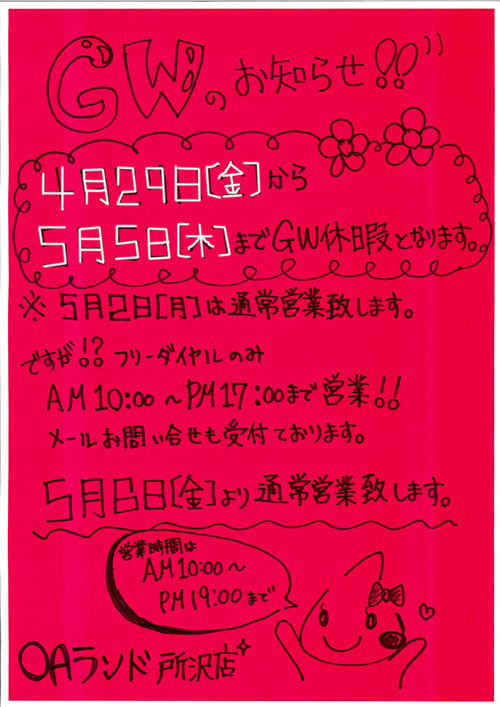 GWのお知らせ!!
4月29日[金]から
5月5日[木]までGW休暇となります。
※5月2日[月]は通常営業致します。
ですが!?フリーダイヤルのみ
AM10:00～PM17:00まで営業!!
メールお問い合せも受付ております。
5月6日[金]より通常営業致します。
営業時間は
AM10:00～
PM19:00まで
OAランド所沢店